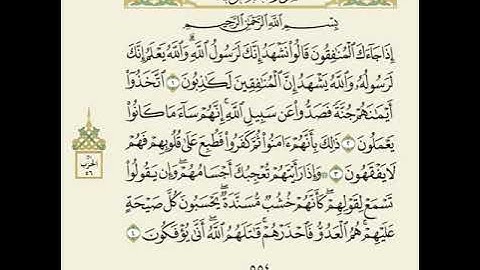 بِسْمِ اللَّهِ الرَّحْمَٰنِ الرَّحِيمِ
إِذَا جَاءَكَ الْمُنَافِقُونَ قَالُوا نَشْهَدُ إِنَّكَ لَرَسُولُ اللَّهِ ۗ وَاللَّهُ يَعْلَمُ إِنَّكَ
لَرَسُولُهُ وَاللَّهُ يَشْهَدُ إِنَّ الْمُنَافِقِينَ لَكَاذِبُونَ ١ اتَّخَذُوا
أَيْمَانَهُمْ جُنَّةً فَصَدُّوا عَن سَبِيلِ اللَّهِ ۚ إِنَّهُمْ سَاءَ مَا كَانُوا
يَعْمَلُونَ ٢ ذَٰلِكَ بِأَنَّهُمْ ءَامَنُوا ثُمَّ كَفَرُوا فَطُبِعَ عَلَىٰ قُلُوبِهِمْ فَهُمْ
لَا يَفْقَهُونَ ٣ ۞ وَإِذَا رَأَيْتَهُمْ تُعْجِبُكَ أَجْسَامُهُمْ ۖ وَإِن يَقُولُوا
تَسْمَعْ لِقَوْلِهِمْ ۖ كَأَنَّهُمْ خُشُبٌ مُّسَنَّدَةٌ ۖ يَحْسَبُونَ كُلَّ صَيْحَةٍ
عَلَيْهِمْ ۚ هُمُ الْعَدُوُّ فَاحْذَرْهُمْ ۚ قَاتَلَهُمُ اللَّهُ ۖ أَنَّىٰ يُؤْفَكُونَ ٤
الحزب
٥٦
٥٥٤